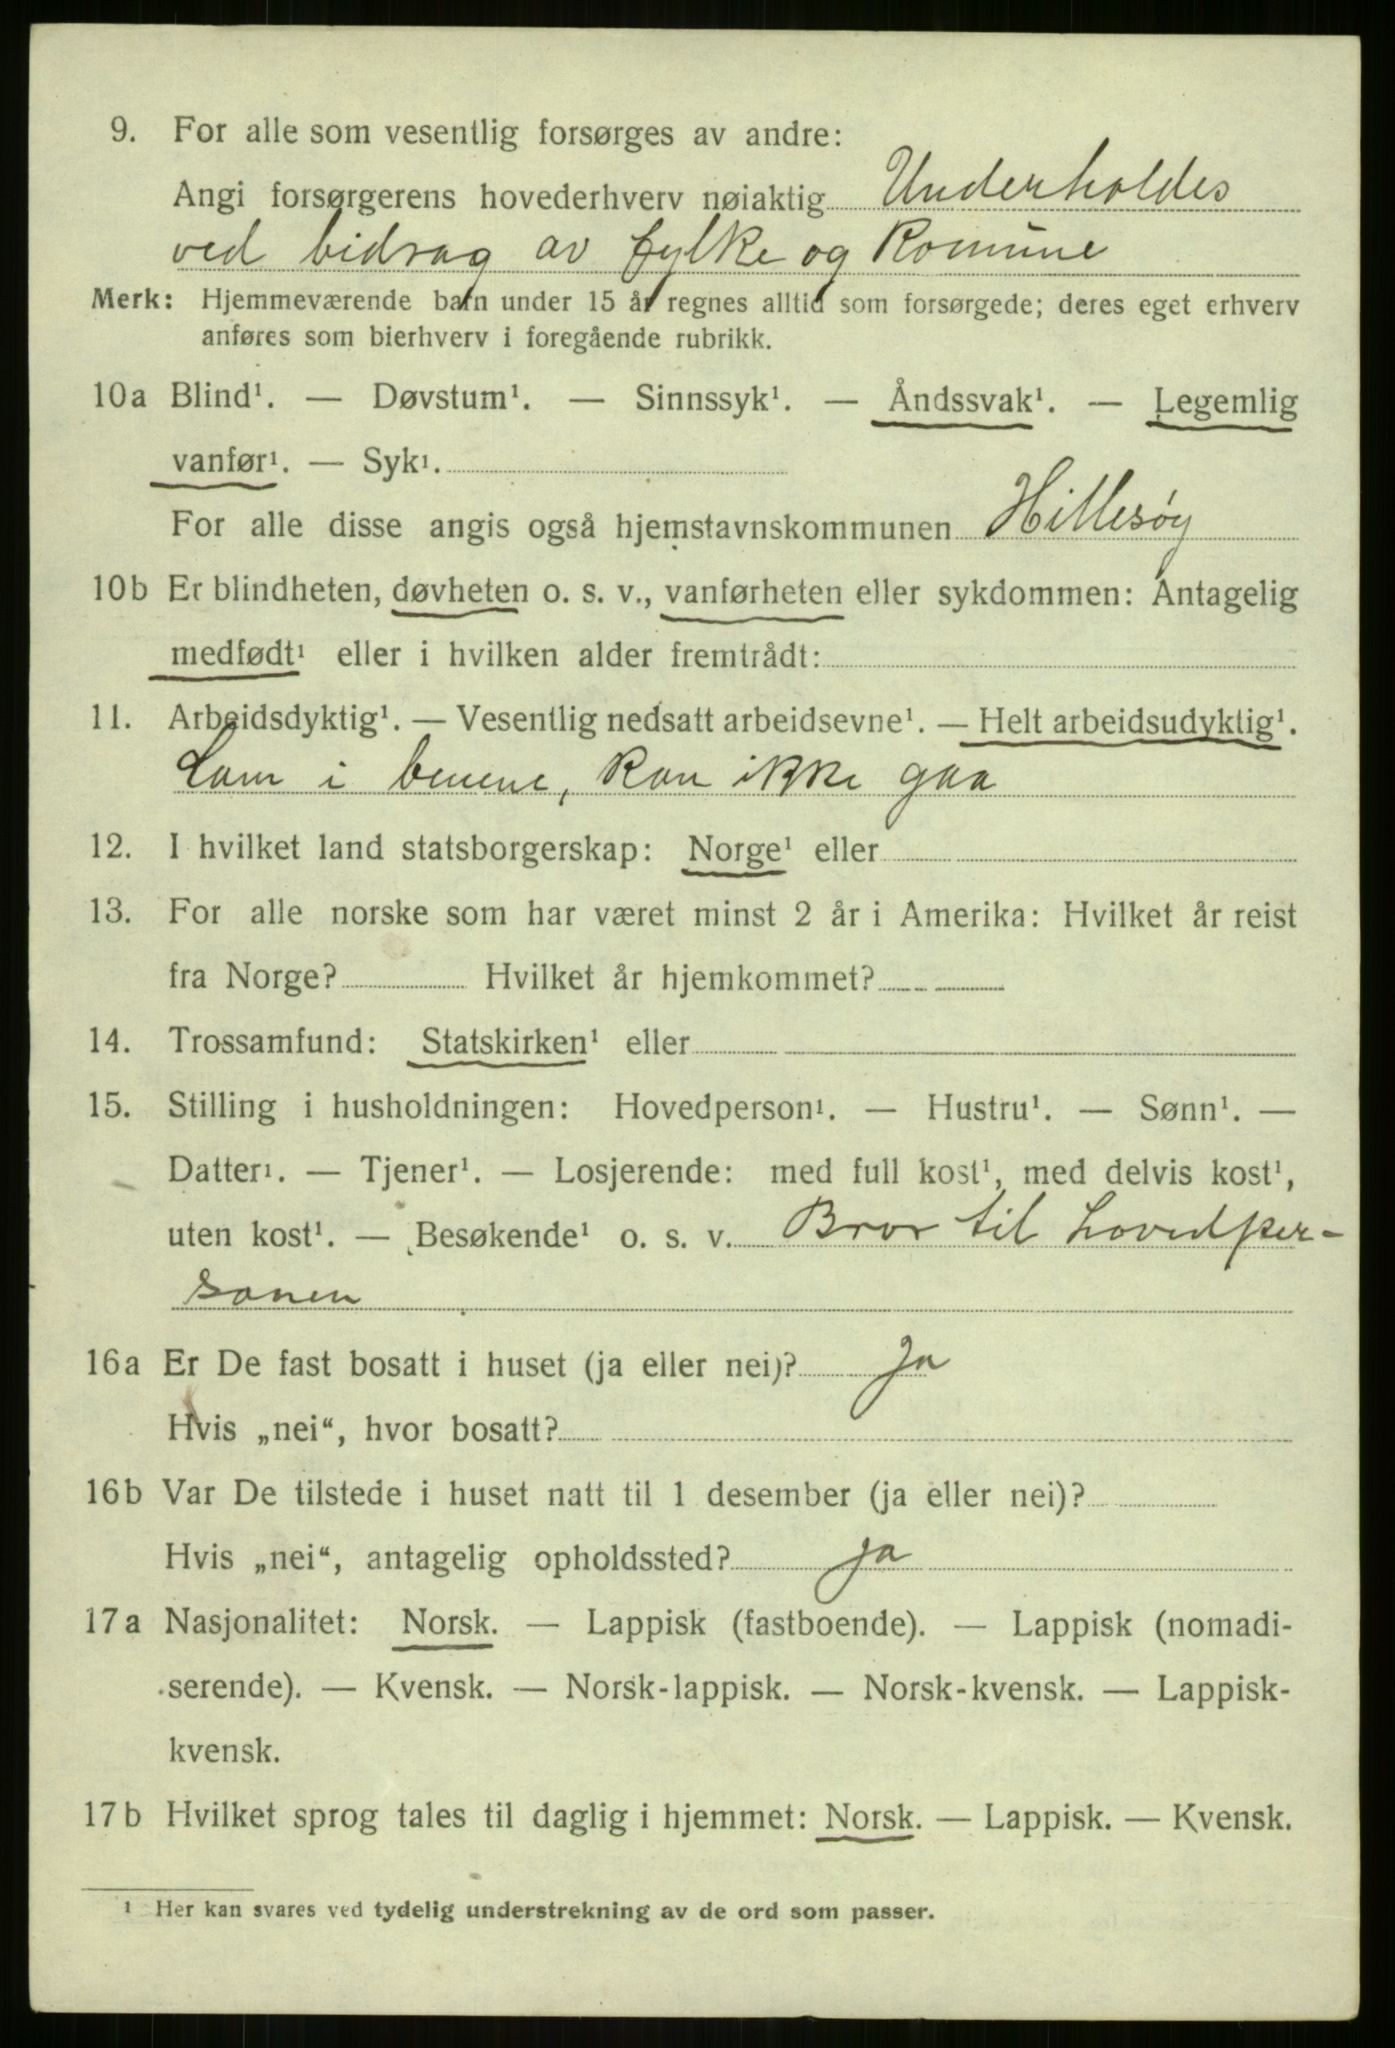 9. For alle som vesentlig forsørges av andre:
Angi forsørgerens hovederhverv nøiaktig Underholdes
ved bidrag av fylke og Komune
Merk: Hjemmeværende barn under 15 år regnes alltid som forsørgede; deres eget erhverv
anføres som bierhverv i foregående rubrikk.
10a Blind¹. — Døvstum¹. — Sinnssyk¹. — Åndssvak¹. — Legemlig
vanfør¹. — Syk¹.
For alle disse angis også hjemstavnskommunen Hillesøy
10b Er blindheten, døvheten o. s. v., vanførheten eller sykdommen: Antagelig
medfødt¹ eller i hvilken alder fremtrådt:
11. Arbeidsdyktig¹. — Vesentlig nedsatt arbeidsevne¹. — Helt arbeidsudyktig¹.
Lam i benene, kan ikke gaa
12. I hvilket land statsborgerskap: Norge¹ eller
13. For alle norske som har været minst 2 år i Amerika: Hvilket år reist
fra Norge? Hvilket år hjemkommet?
14. Trossamfund: Statskirken¹ eller
15. Stilling i husholdningen: Hovedperson¹. — Hustru¹. — Sønn¹. —
Datter¹. — Tjener¹. — Losjerende: med full kost¹, med delvis kost¹,
uten kost¹. — Besøkende¹ o. s. v. Bror til hovedper-
sonen
16a Er De fast bosatt i huset (ja eller nei)? Ja
Hvis „nei“, hvor bosatt?
16b Var De tilstede i huset natt til 1 desember (ja eller nei)?
Hvis „nei“, antagelig opholdssted? ja
17a Nasjonalitet: Norsk. — Lappisk (fastboende). — Lappisk (nomadi-
serende). — Kvensk. — Norsk-lappisk. — Norsk-kvensk. — Lappisk-
kvensk.
17b Hvilket sprog tales til daglig i hjemmet: Norsk. — Lappisk. — Kvensk.
¹ Her kan svares ved tydelig understrekning av de ord som passer.